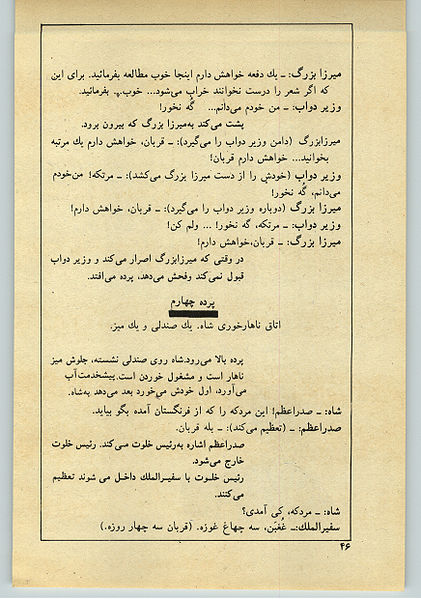 میرزا بزرگ: ـ یك دفعه خواهش دارم اینجا خوب مطالعه بفرمائید. برای این
که اگر شعر را درست نخوانند خراب می‌شود... خوب.. بفرمائید.
وزیر دواب: ـ من خودم می‌دانم... گُه نخور!
پشت می‌کند به‌میرزا بزرگ که بیرون برود.
میرزابزرگ (دامن وزیر دواب را می‌گیرد): ـ قربان، خواهش دارم یك مرتبه
بخوانید... خواهش دارم قربان!
وزیر دواب (خودش را از دست میرزا بزرگ می‌کشد): ـ مرتکه! من‌خودم
می‌دانم، گُه نخور!
میرزا بزرگ (دوباره وزیر دواب را می‌گیرد): ـ قربان، خواهش دارم!
وزیر دواب: ـ مرتکه، گه نخور! ... ولم کن!
میرزا بزرگ: ـ قربان،خواهش دارم!
در وقتی که میرزابزرگ اصرار می‌کند و وزیر دواب
قبول نمی‌کند وفحش می‌دهد، پرده می‌افتد.
پرده چهارم
اتاق ناهارخوری شاه. یك صندلی و یك میز.
پرده بالا می‌رود.شاه روی صندلی نشسته، جلوش میز
ناهار است و مشغول خوردن است.پیشخدمت‌آب
می‌آورد، اول خودش می‌خورد بعد می‌دهد به‌شاه.
شاه: ـ صدراعظم! این مردکه را که از فرنگستان آمده بگو بیاید.
صدراعظم: ـ (تعظیم می‌کند): ـ بله قربان.
صدراعظم اشاره به‌رئیس خلوت می‌کند. رئیس خلوت
خارج می‌شود.
رئیس خلوت با سفیرالملك داخل می شوند تعظیم
می‌کنند.
شاه: ـ مردکه، کی آمدی؟
سفیرالملك:ـ غُغَبَن، سه چهاغ غوزه. (قربان سه چهار روزه.)
۴۶